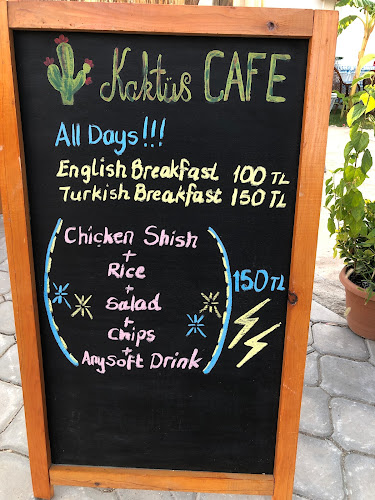 Kaktüs CAFE
All Days!!!
English Breakfast 100 TL
Turkish Breakfast 150 TL
Chicken Shish
+
Rice
+
Salad
+
Chips
+
Any Soft Drink
150 TL